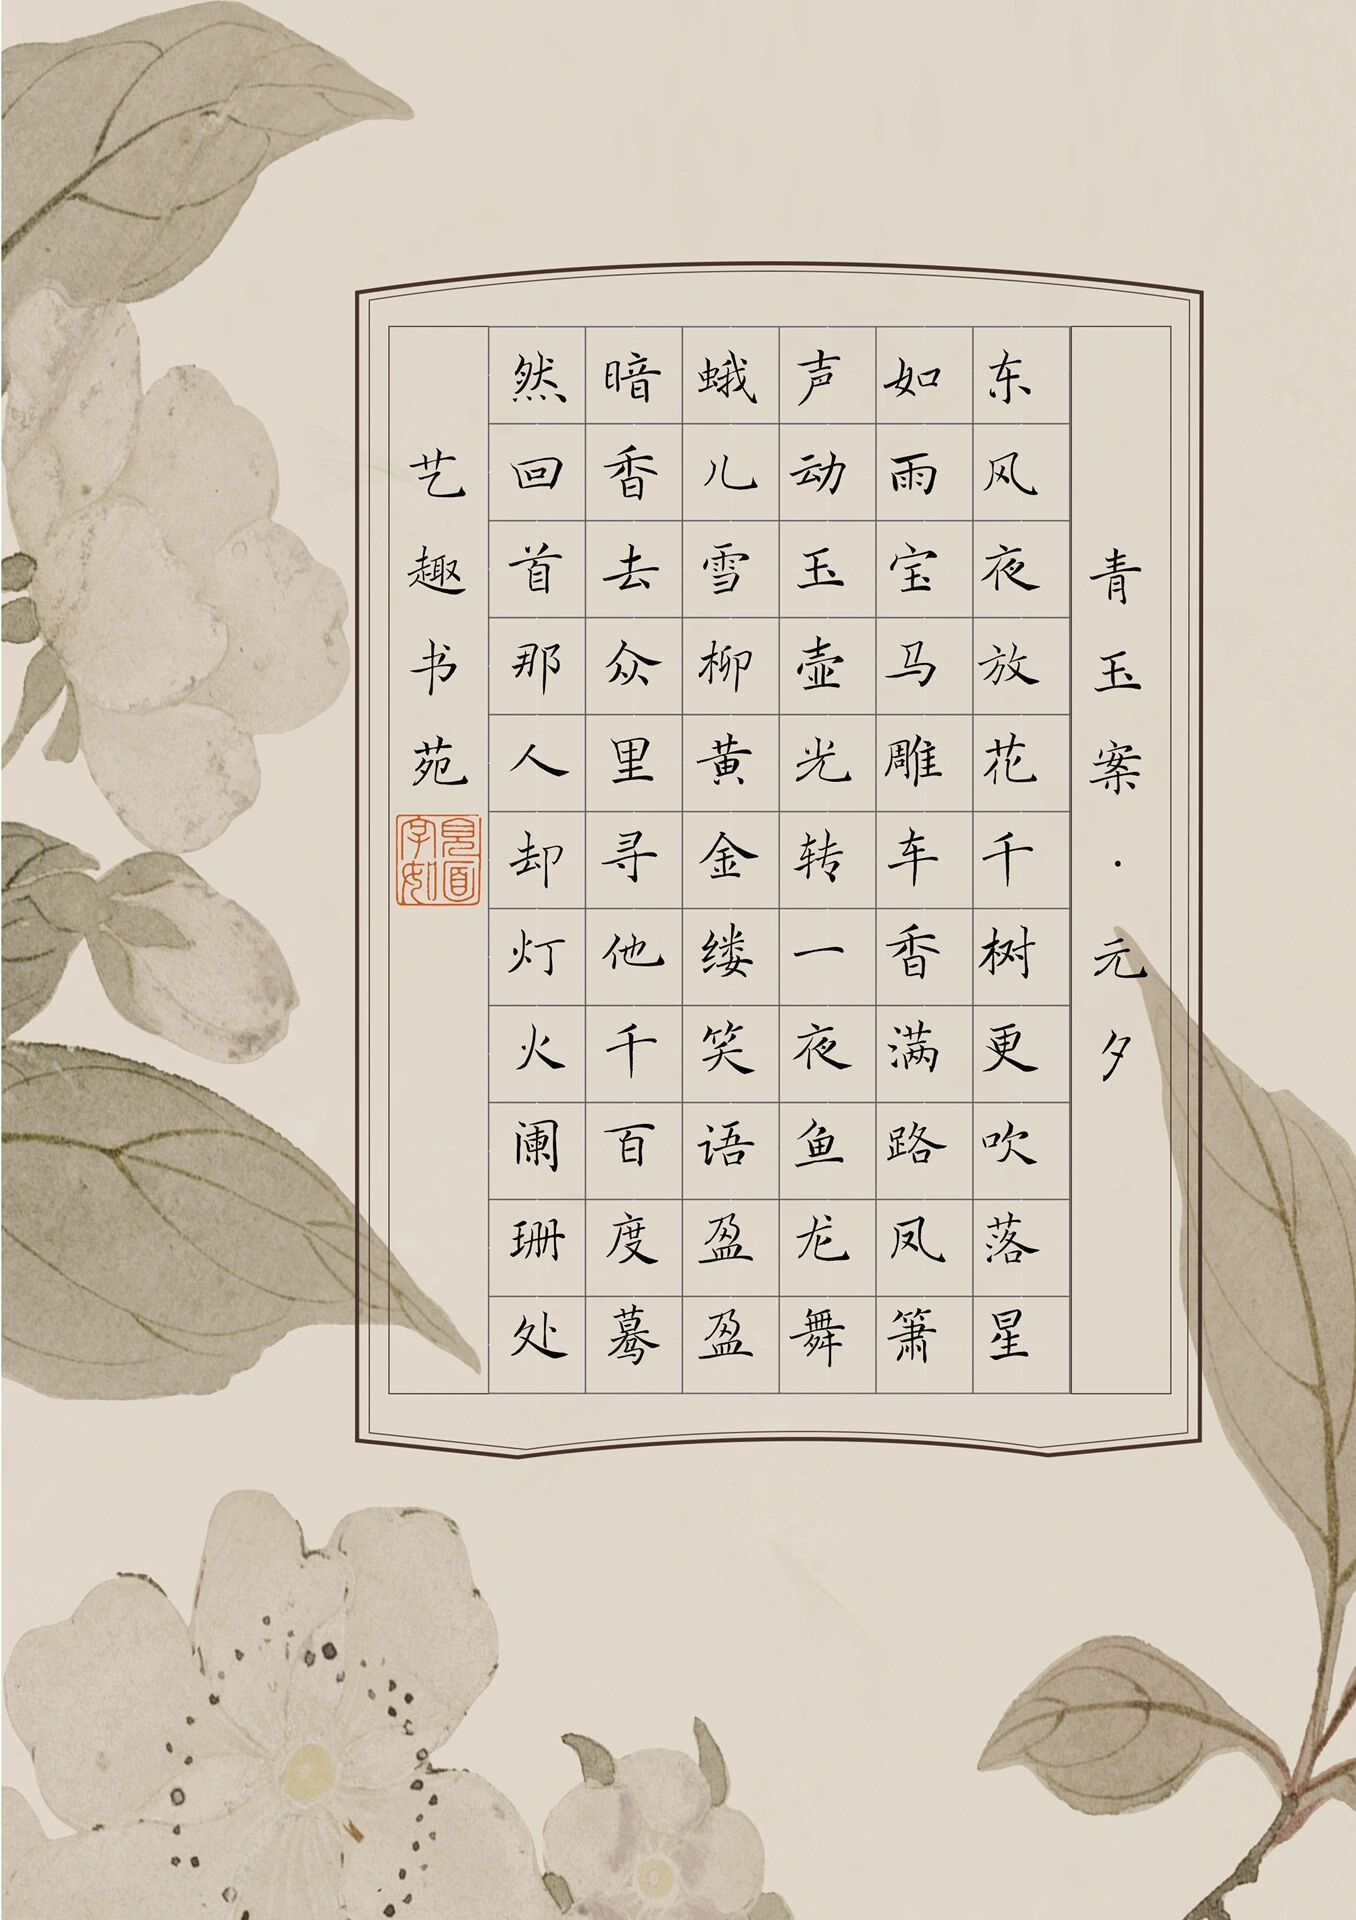 青玉案·元夕
东风夜放花千树更吹落星
如雨宝马雕车香满路凤箫
声动玉壶光转一夜鱼龙舞
蛾儿雪柳黄金缕笑语盈盈
暗香去众里寻他千百度蓦
然回首那人却灯火阑珊处
艺趣书苑
见字如面